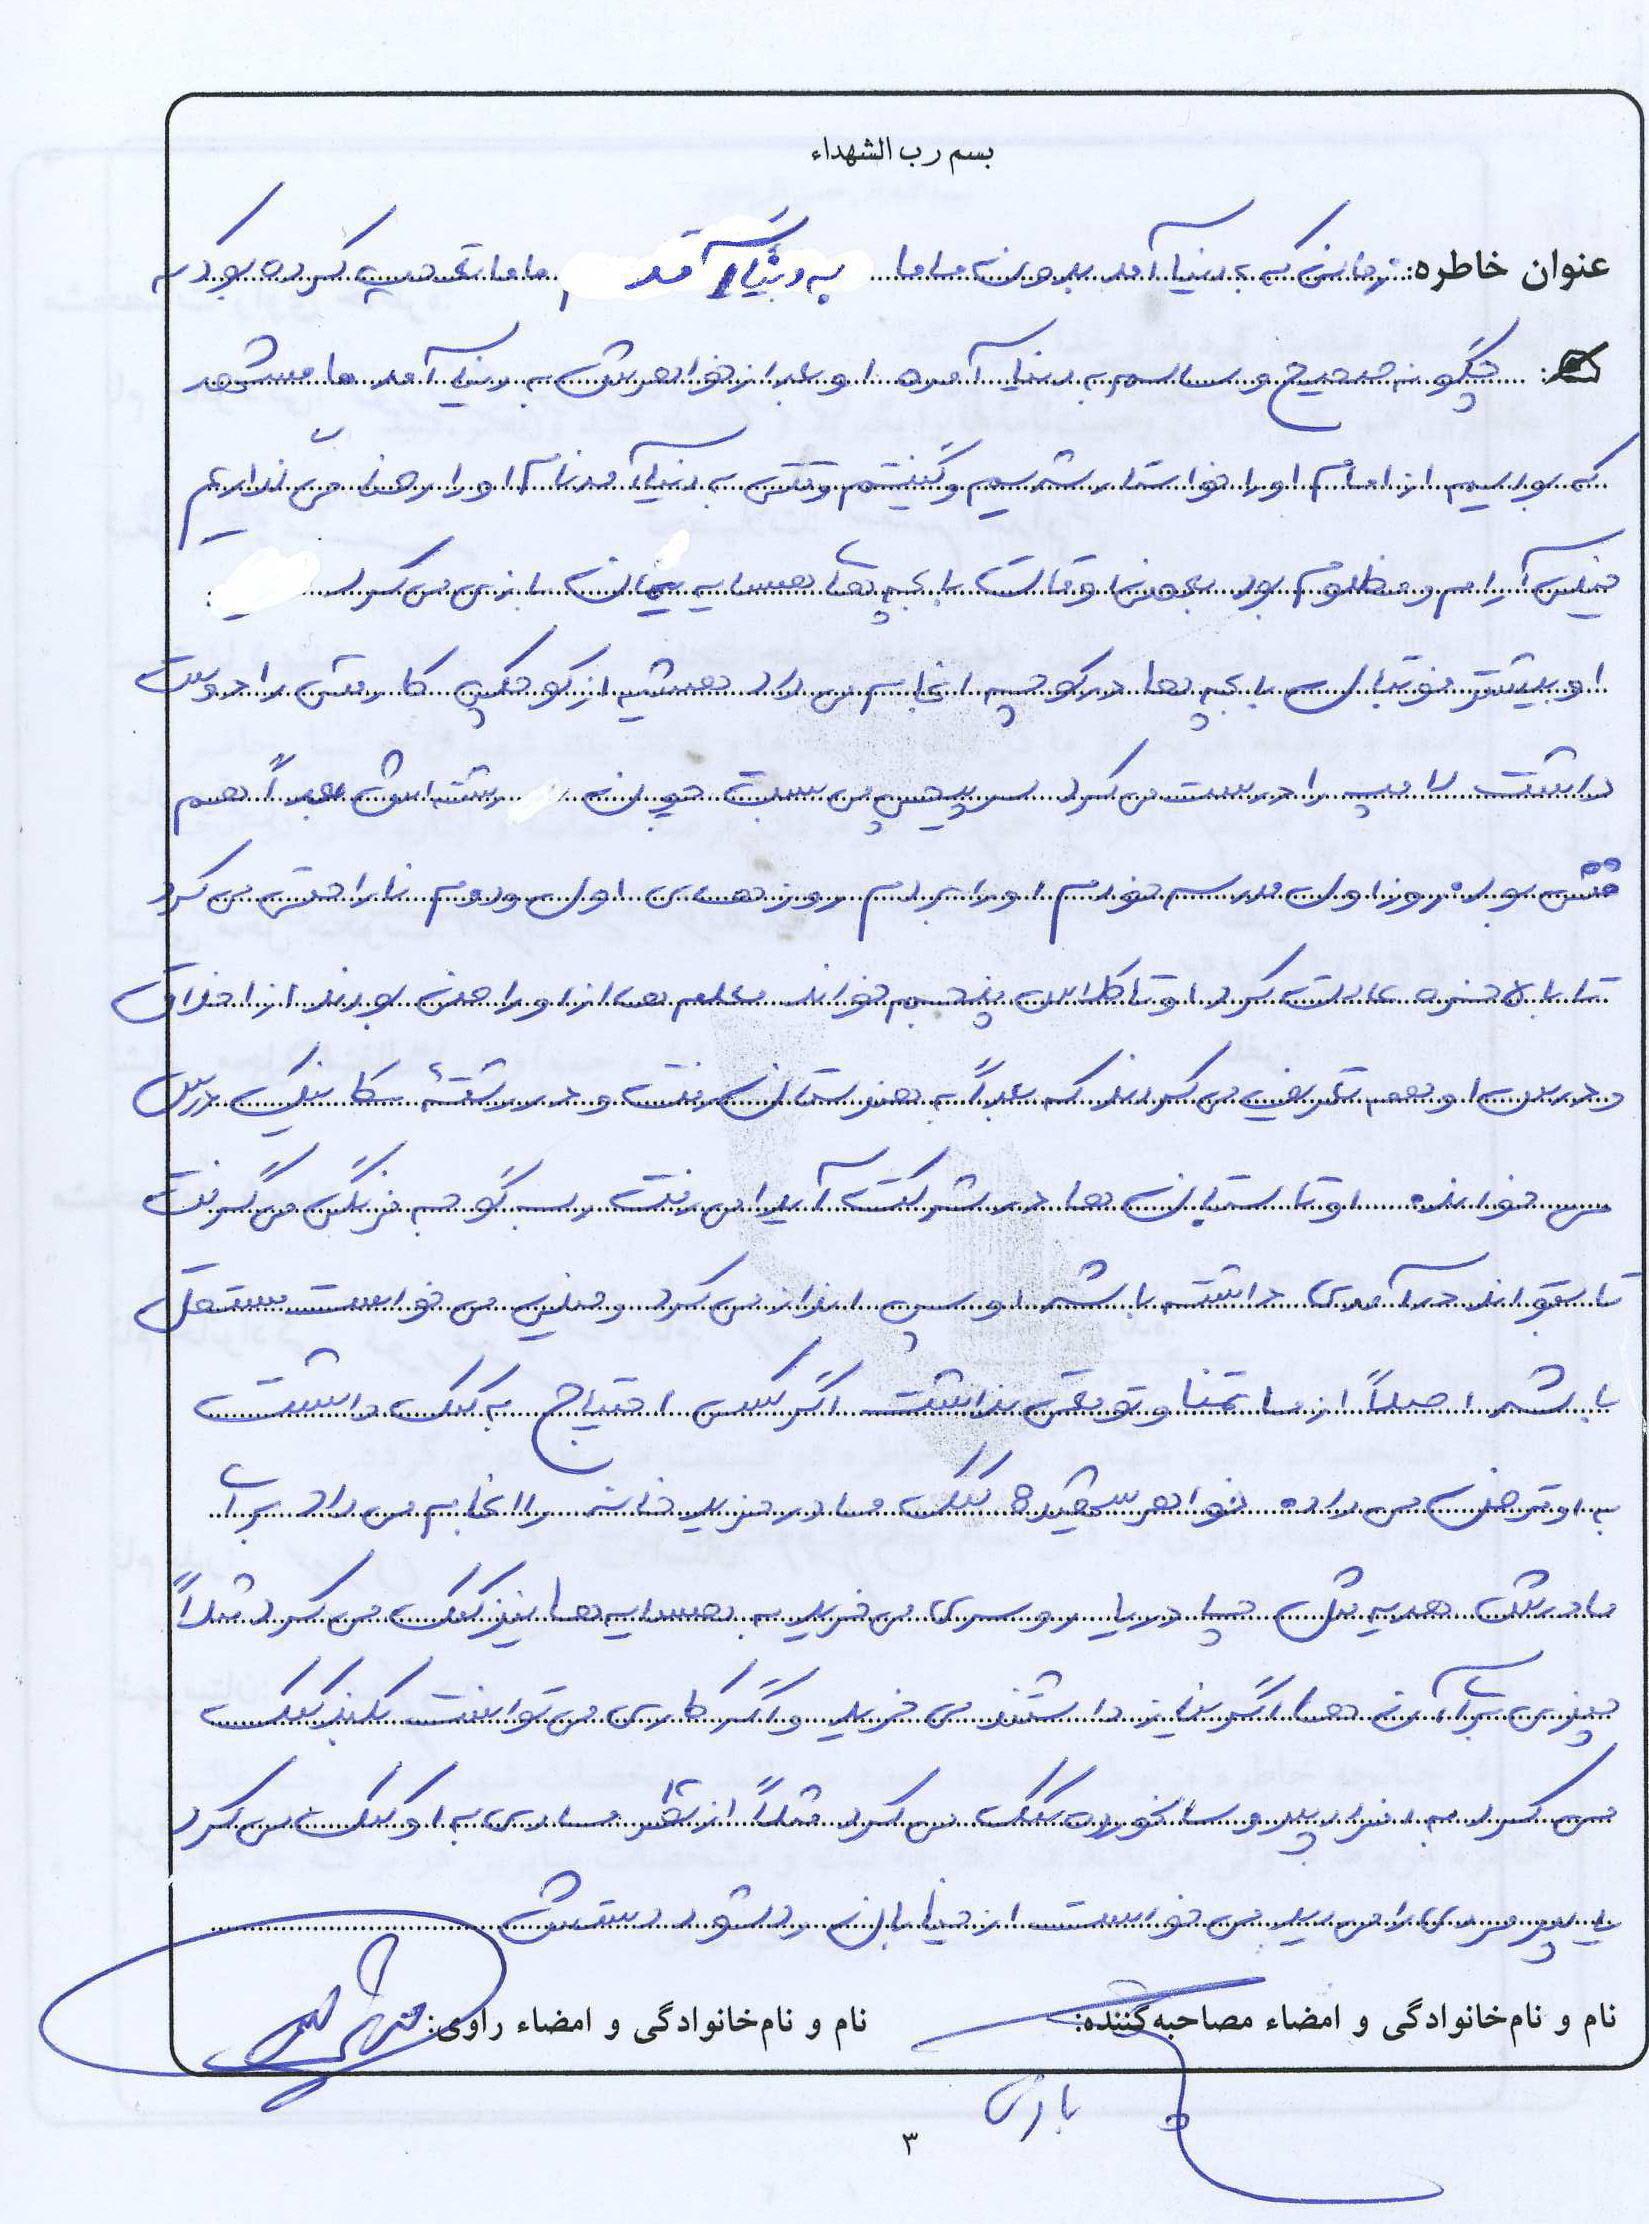 بسم رب الشهداء
عنوان خاطره: زمانی که به دنیا آمد بدون ماما به دنیا آمد ماما تعجب کرده بود که
چگونه صحیح و سالم به دنیا آمده او بعد از خواهرش به دنیا آمد ما مشهد
که بودیم از امام او را خواستار شدیم و گفتیم وقتی به دنیا آمد نام او را رضا می‌گذاریم
خیلی آرام و مظلوم بود بعضی اوقات با بچه‌های همسایه‌یمان بازی می‌کرد
او بیشتر فوتبال با بچه‌ها در کوچه انجام می‌داد همیشه از کوچکی کار فنی را دوست
داشت لامپ را درست می‌کرد سرپیچ می‌بست چون رشته‌اش بعداً هم
فنی بود روز اول مدرسه خودم او را بردم روزهای اول و دوم ناراحتی می‌کرد
تا بالاخره عادت کرد او تا کلاس پنجم خواند معلم‌ها از او راضی بودند از اخلاق
و درس او هم تعریف می‌کردند که بعداً به هنرستان رفت و در رشتهٔ مکانیک درس
می‌خواند او تابستان‌ها در شرکت آیدا می‌رفت رب گوجه فرنگی می‌گرفت
تا بتواند درآمدی داشته باشد او پس‌انداز می‌کرد و خیلی می‌خواست مستقل
باشد اصلاً از ما تمنا و توقعی نداشت اگر کسی احتیاج به کمک داشت
به او قرض می‌داد خواهر کمک مادر خرید خانه را انجام می‌داد برای
مادرش هدیه مثل چادر یا روسری می‌خرید به همسایه‌ها نیز کمک می‌کرد مثلاً
چیزی برای آن‌ها اگر نیاز داشتند می‌خرید و اگر کاری می‌توانست بکند کمک
می‌کرد به افراد پیر و سالخورده کمک می‌کرد مثلاً از نظر مادی به او کمک می‌کرد
یا پیرمردی را می‌دید می‌خواست از خیابان رد شود دستش
نام و نام‌خانوادگی و امضاء مصاحبه‌کننده: نام و نام‌خانوادگی و امضاء راوی:
۳